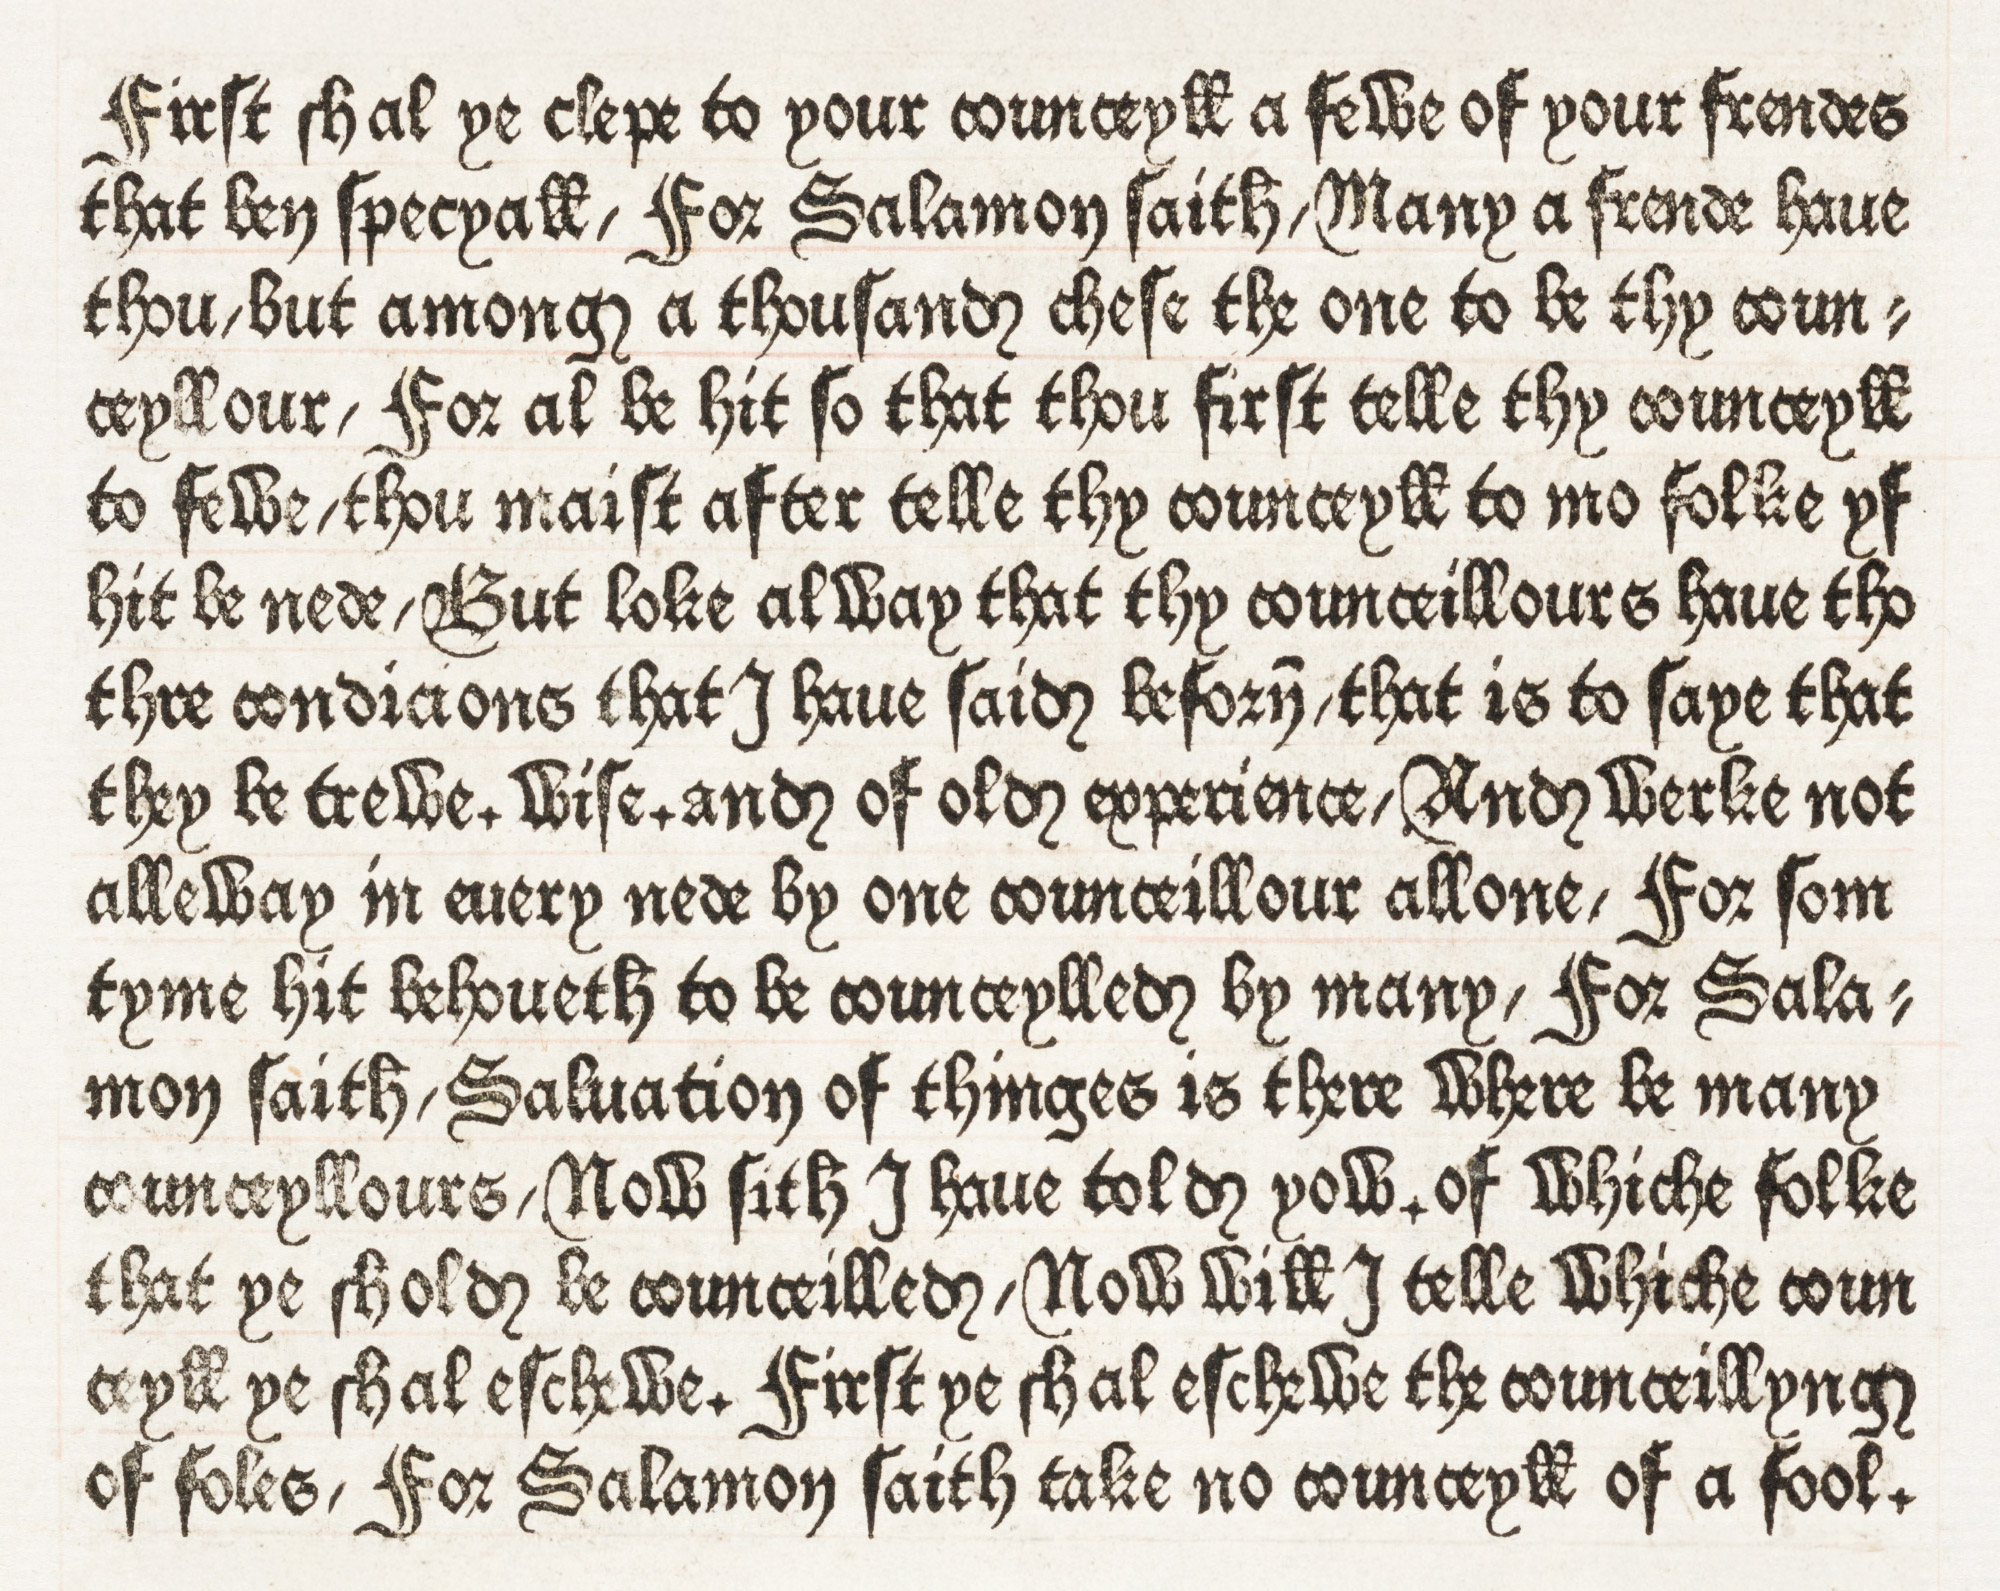 First shal ye clepe to your counceyll a fewe of your frendes
that ben specyall/ For Salamon saith/Many a frende haue
thou/but among a thousand chese the one to be thy coun⸗
ceyllour/ For al be hit so that thou first telle thy counceyll
to fewe/thou maist after telle thy counceyll to mo folke yf
hit be nede/But loke alway that thy counceillours haue tho
thre condicions that I haue said beforn̄/that is to saye that
they be trewe. wise.and of old experience/And werke not
alleway in euery nede by one counceillour allone/ For som
tyme hit behoueth to be counceylled by many/ For Sala⸗
mon saith/Saluation of thinges is there where be many
counceyllours/Now sith I haue told yow.of whiche folke
that ye shold be counceilled/Now will I telle whiche coun
ceyll ye shal eschewe. First ye shal eschewe the counceillyng
of foles/ For Salamon saith take no counceyll of a fool.